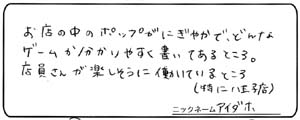 お店の中のポップがにぎやかで、どんな
ゲームか分かりやすく書いてあるところ。
店員さんが楽しそうに働いているところ
(特に八王子店)
ニックネーム アイダホ